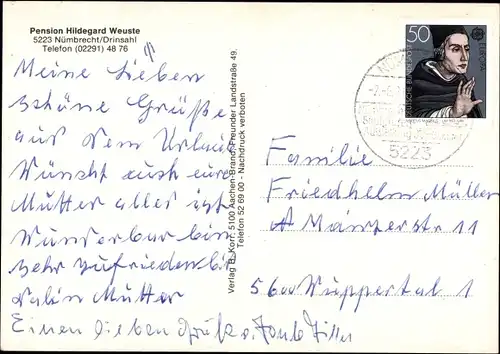 Pension Hildegard Weuste
5223 Nümbrecht/Drinsahl
Telefon (02291) 48 76
Meine Lieben
schöne Grüße
aus dem Urlaub
Wünscht euch eure
Mutter alles ist
Wunderbar bin
sehr zufrieden bis
dahin Mutter
Einen lieben Gruß v. Tante
Verlag B. Korr, 5100 Aachen-Brand, Freunder Landstraße 49,
Telefon 52 69 00 - Nachdruck verboten
50
EUROPA
DEUTSCHE BUNDESPOST
5223
Familie
Friedhelm Müller
Mainzerstr 11
5600 Wuppertal 1